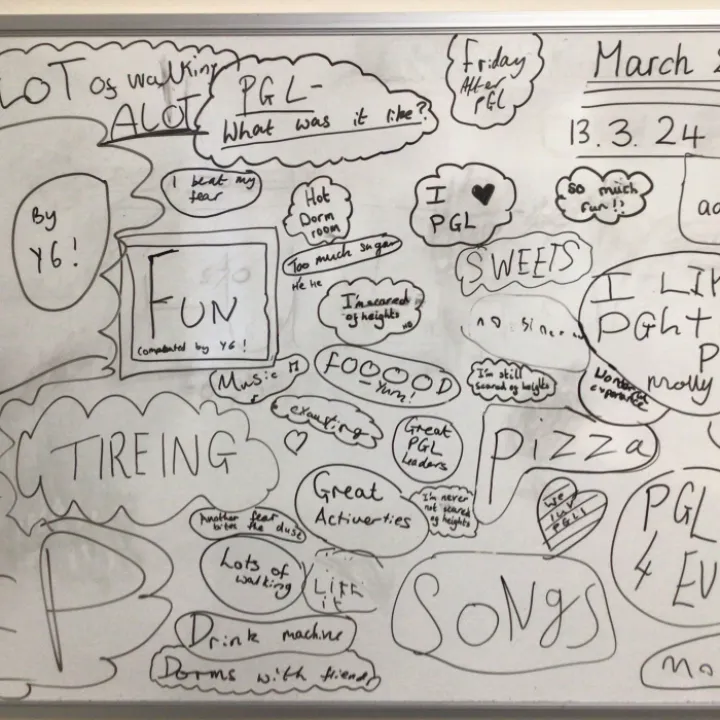 LOT of walking
ALOT
PGL-
What was it like?
Friday
After
PGL
March
13.3.24
By
Y6!
I beat my
fear
Hot
Dorm
room
I ♥
PGL
So much
fun!!
FUN
Too much sugar
He He
SWEETS
I'm scared
of heights
I LIK
PGL+
P
molly
Music
FOOOOD
Yum!
I'm still
scared of heights
exausting
Great
PGL
Leaders
Pizza
TIREING
Great
Activerties
I'm never
not scared
of heights
We
luv
PGL!
PGL
4 EV
Another fear
bites the dust
Lots of
walking
LIFE
it
SONgS
EP
Drink machine
Dorms with friend
Mo